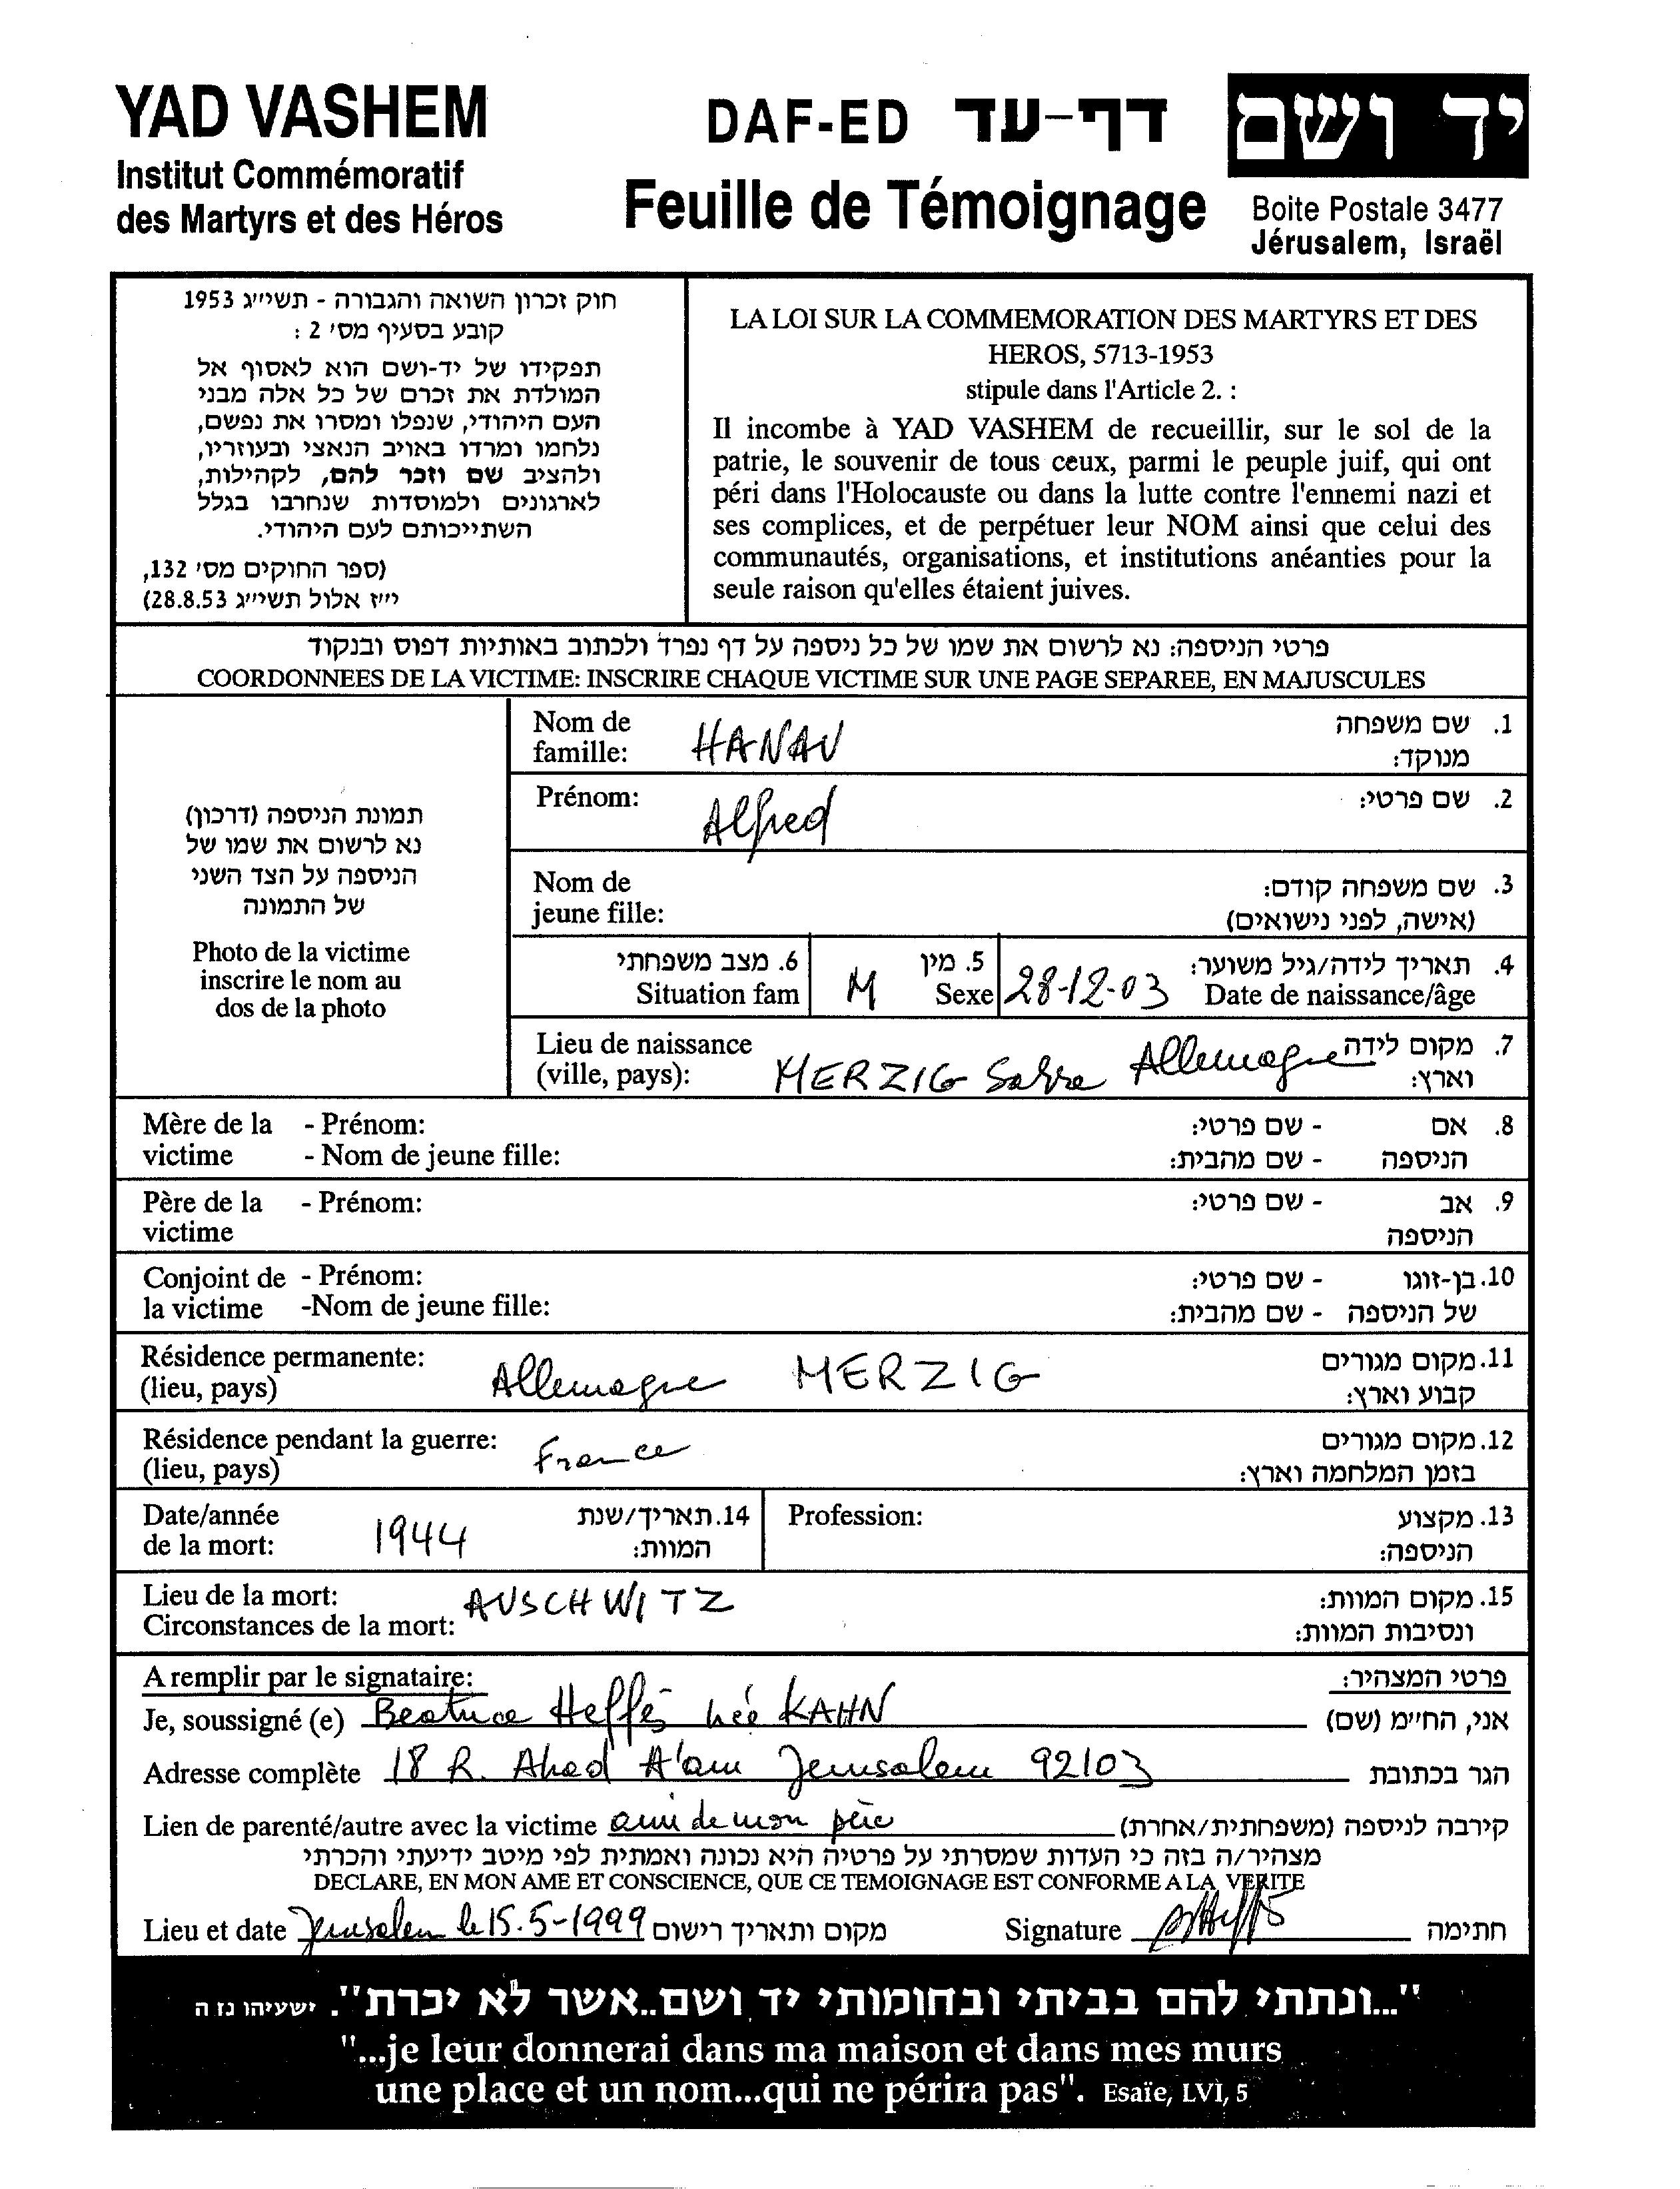 YAD VASHEM
Institut Commémoratif
des Martyrs et des Héros
DAF-ED דף-עד
Feuille de Témoignage
יד ושם
Boite Postale 3477
Jérusalem, Israël
חוק זכרון השואה והגבורה - תשי״ג 1953
קובע בסעיף מס׳ 2 :
תפקידו של יד-ושם הוא לאסוף אל
המולדת את זכרם של כל אלה מבני
העם היהודי, שנפלו ומסרו את נפשם,
נלחמו ומרדו באויב הנאצי ובעוזריו,
ולהציב שם וזכר להם, לקהילות,
לארגונים ולמוסדות שנחרבו בגלל
השתייכותם לעם היהודי.
(ספר החוקים מס׳ 132,
י״ז אלול תשי״ג 28.8.53)
LA LOI SUR LA COMMEMORATION DES MARTYRS ET DES
HEROS, 5713-1953
stipule dans l'Article 2. :
Il incombe à YAD VASHEM de recueillir, sur le sol de la
patrie, le souvenir de tous ceux, parmi le peuple juif, qui ont
péri dans l'Holocauste ou dans la lutte contre l'ennemi nazi et
ses complices, et de perpétuer leur NOM ainsi que celui des
communautés, organisations, et institutions anéanties pour la
seule raison qu'elles étaient juives.
פרטי הניספה: נא לרשום את שמו של כל ניספה על דף נפרד ולכתוב באותיות דפוס ובנקוד
COORDONNEES DE LA VICTIME: INSCRIRE CHAQUE VICTIME SUR UNE PAGE SEPAREE, EN MAJUSCULES
תמונת הניספה (דרכון)
נא לרשום את שמו של
הניספה על הצד השני
של התמונה
Photo de la victime
inscrire le nom au
dos de la photo
Nom de HANAU 1. שם משפחה
famille: מנוקד:
Prénom: Alfred 2. שם פרטי:
Nom de 3. שם משפחה קודם:
jeune fille: (אישה, לפני נישואים)
6. מצב משפחתי 5. מין 4. תאריך לידה/גיל משוער:
Situation fam M Sexe 28-12-03 Date de naissance/âge
Lieu de naissance 7. מקום לידה
(ville, pays): MERZIG Sarre Allemagne וארץ:
Mère de la - Prénom: - שם פרטי: 8. אם
victime - Nom de jeune fille: - שם מהבית: הניספה
Père de la - Prénom: - שם פרטי: 9. אב
victime הניספה
Conjoint de - Prénom: - שם פרטי: 10. בן-זוגו
la victime -Nom de jeune fille: - שם מהבית: של הניספה
Résidence permanente: Allemagne MERZIG 11. מקום מגורים
(lieu, pays) קבוע וארץ:
Résidence pendant la guerre: France 12. מקום מגורים
(lieu, pays) בזמן המלחמה וארץ:
Date/année 1944 14. תאריך/שנת Profession: 13. מקצוע
de la mort: המוות: הניספה:
Lieu de la mort: AUSCHWITZ 15. מקום המוות:
Circonstances de la mort: ונסיבות המוות:
A remplir par le signataire: פרטי המצהיר:
Je, soussigné (e) Beatrice Heffès née KAHN אני, הח״מ (שם)
Adresse complète 18 R. Ahad A'am Jerusalem 92103 הגר בכתובת
Lien de parenté/autre avec la victime ami de mon père קירבה לניספה (משפחתית/אחרת)
מצהיר/ה בזה כי העדות שמסרתי על פרטיה היא נכונה ואמתית לפי מיטב ידיעתי והכרתי
DECLARE, EN MON AME ET CONSCIENCE, QUE CE TEMOIGNAGE EST CONFORME A LA VERITE
Lieu et date Jerusalem le 15.5-1999 מקום ותאריך רישום Signature BHeffès חתימה
"...ונתתי להם בביתי ובחומותי יד ושם..אשר לא יכרת". ישעיהו נז ה
"...je leur donnerai dans ma maison et dans mes murs
une place et un nom...qui ne périra pas". Esaïe, LVI, 5